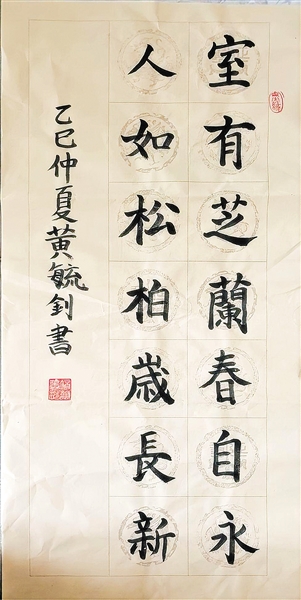 室有芝蘭春自永
人如松柏歲長新
乙巳仲夏黃毓釗書